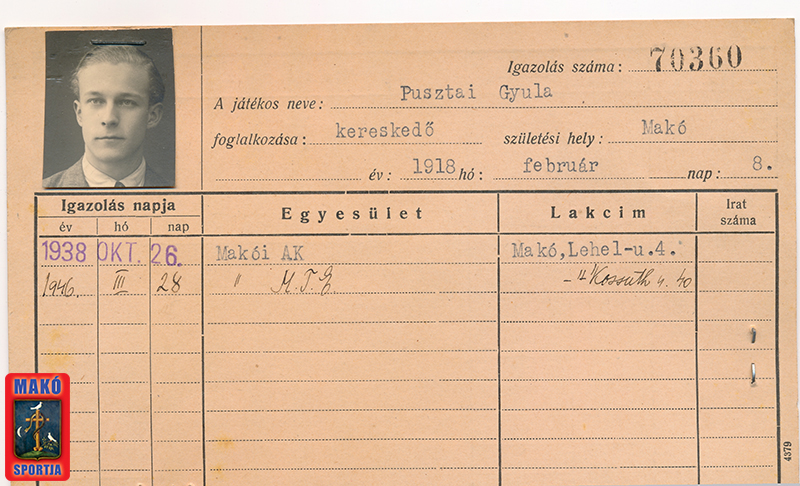 Igazolás száma: 70360
A játékos neve: Pusztai Gyula
foglalkozása: kereskedő születési hely: Makó
év: 1918 hó: február nap: 8.
Igazolás napja Egyesület Lakcim Irat száma
év hó nap
1938 OKT. 26. Makói AK Makó,Lehel-u.4.
1946. III 28 " M.T.E -"- Kossuth u. 40
4379
MAKÓ
SPORTJA